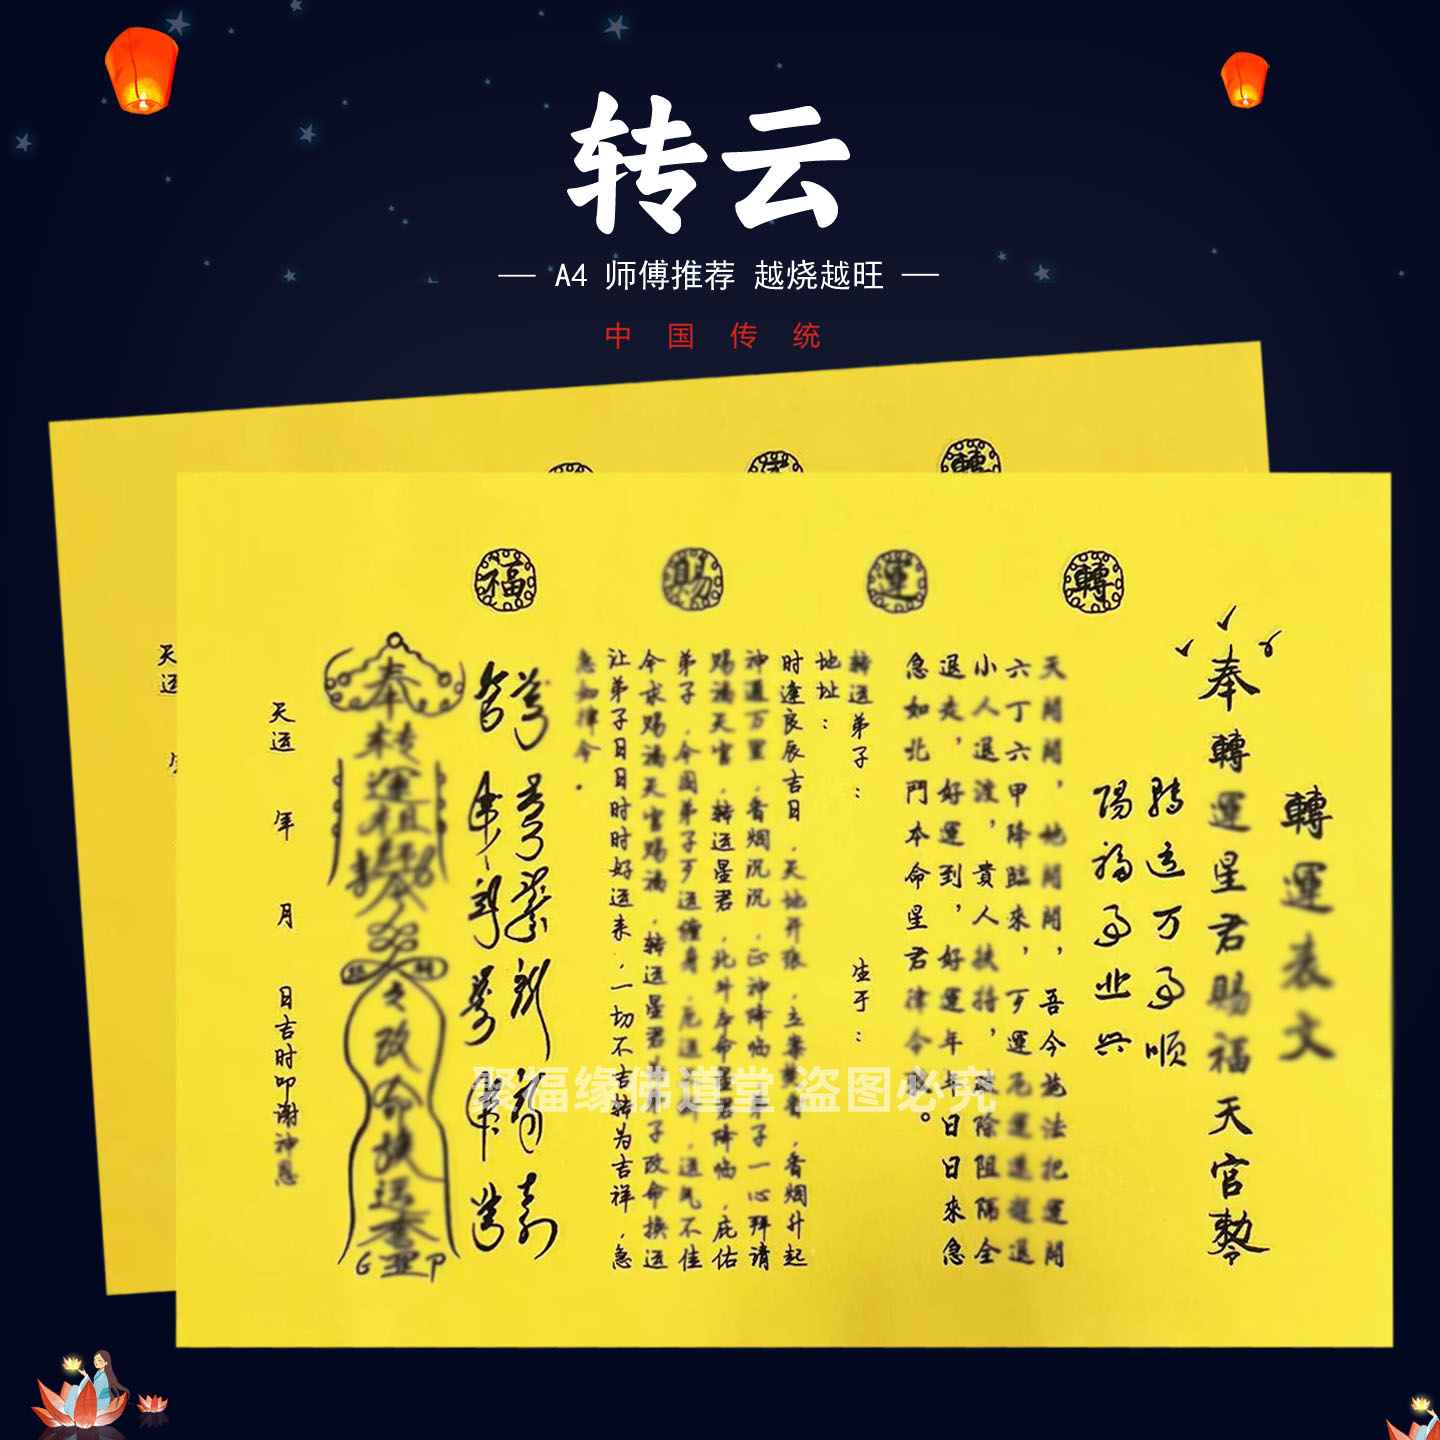 转云
A4 师傅推荐 越烧越旺
中国传统
轉運賜福
轉運表文
奉轉運星君賜福天官勅令
转运万事顺
赐福事业兴
天開開，地開開，吾今施法把運開
六丁六甲降臨來，歹運厄運退退退
小人退渡，貴人扶持，改除阻隔全
退走，好運到，好運年年日日來急
急如北鬥本命星君律令
转运弟子： 生于：
地址：
时逢良辰吉日，天地开张，立案焚香，香烟升起
神通万里，香烟沉沉，正神降临，弟子一心拜请
赐福天官，转运星君，北斗本命星君降临，庇佑
弟子，今因弟子歹运缠身，厄运，运气不佳
今求赐福天官赐福，转运星君为弟子改命换运
让弟子日日时时好运来，一切不吉转为吉祥，急
急如律令。
奉
转
運
祖
令
之
改
命
换
运
天运 年 月 日吉时叩谢神恩
天运
聚福缘佛道堂 盗图必究